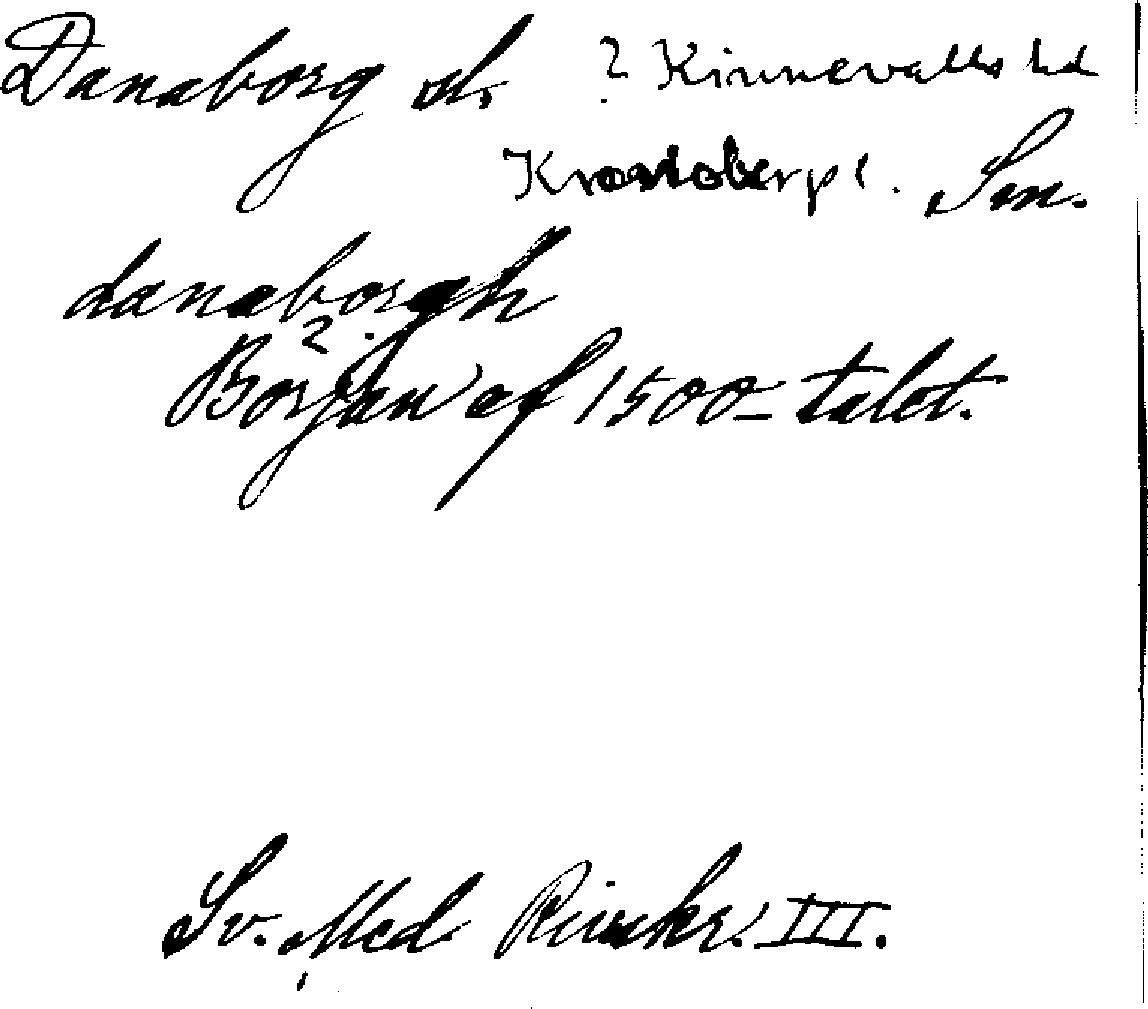 Danaborg sl. ? Kinnevalds hd
Kronobergs l. Sm.
danaborgh
?
Början af 1500-talet.
Sv. Med Rimkr. III.